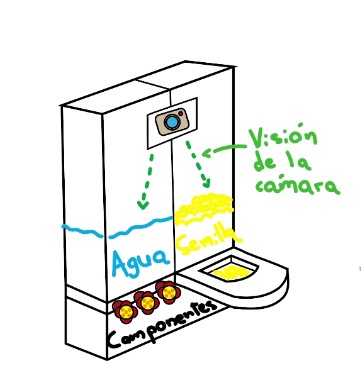 Visión
de la
cámara
Agua
Semilla
Componentes